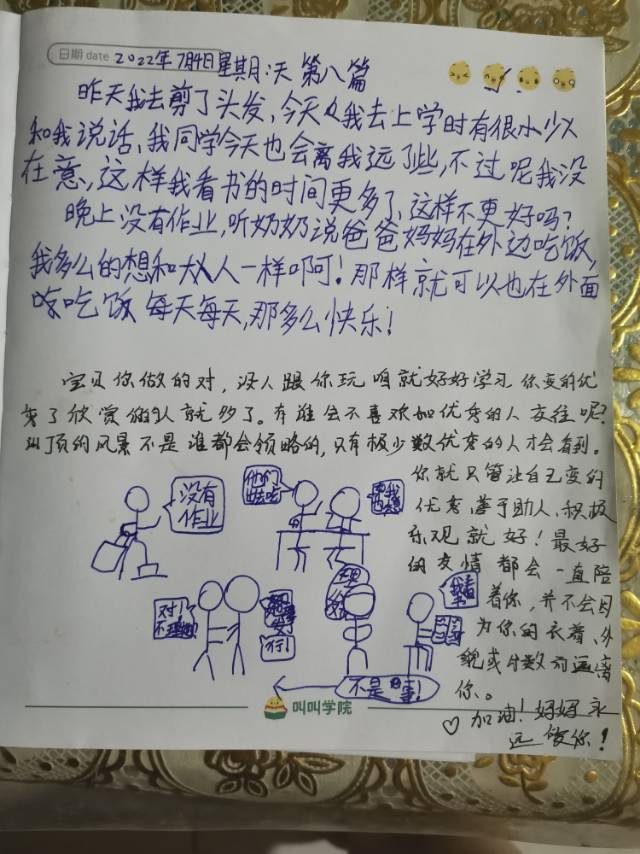 日期 date 2022年7月4日星其月:天 第八篇
昨天我去剪了头发,今天我去上学时有很小少人
和我说话,我同学今天也会离我远了些,不过呢我没
在意,这样我看书的时间更多了,这样不更好吗?
晚上没有作业,听奶奶说爸爸妈妈在外边吃饭,
我多么的想和大人一样啊!那样就可以也在外面
吃饭 每天每天,那多么快乐!
宝贝你做的对,没人跟你玩咱就好好学习 你变的优
秀了欣赏你的人就多了。有谁会不喜欢和优秀的人交往呢?
山顶的风景不是谁都会领略的,只有极少数优秀的人才会看到。
你就只管让自己变的
优秀,善于助人、积极
乐观就好!最好
的友情都会一直陪
着你,并不会因
为你的衣着、外
貌或分数而远离
你。
♡加油!妈妈永
远爱你!
没有
作业
他们
出去吃
对!
不理她!
行!
不是事!
叫叫学院